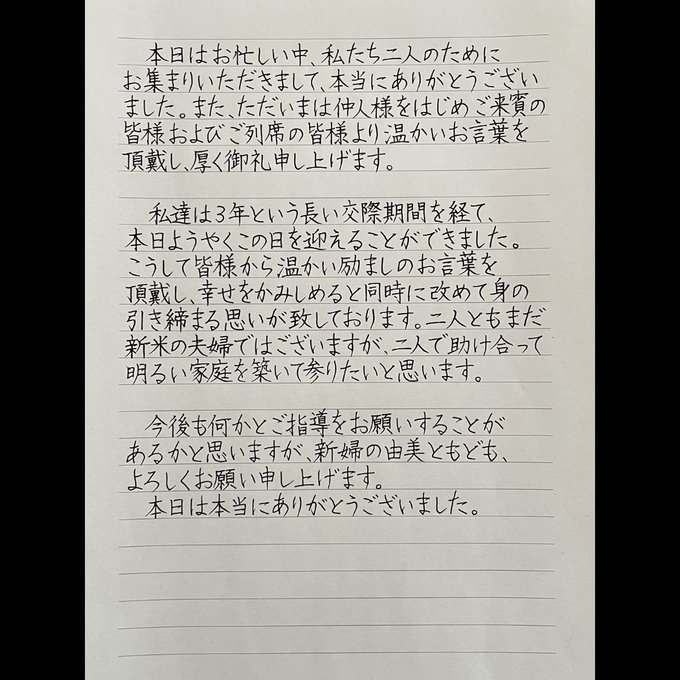 本日はお忙しい中、私たち二人のために
お集まりいただきまして、本当にありがとうござい
ました。また、ただいまは仲人様をはじめご来賓の
皆様およびご列席の皆様より温かいお言葉を
頂戴し、厚く御礼申し上げます。
私達は3年という長い交際期間を経て、
本日ようやくこの日を迎えることができました。
こうして皆様から温かい励ましのお言葉を
頂戴し、幸せをかみしめると同時に改めて身の
引き締まる思いが致しております。二人ともまだ
新米の夫婦ではございますが、二人で助け合って
明るい家庭を築いて参りたいと思います。
今後も何かとご指導をお願いすることが
あるかと思いますが、新婦の由美ともども、
よろしくお願い申し上げます。
本日は本当にありがとうございました。